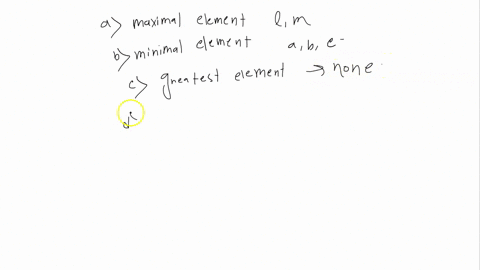 a> maximal element l, m
b> minimal element a, b, e
c> greatest element → none
d